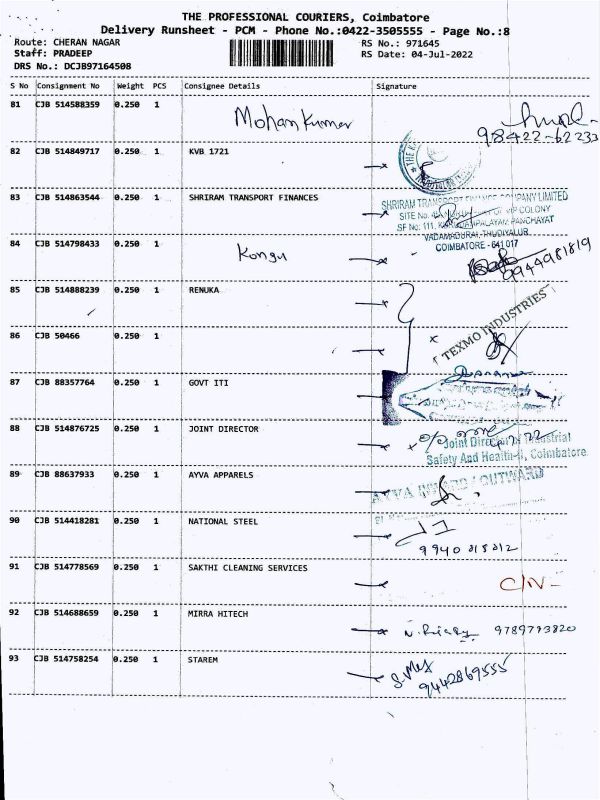 THE PROFESSIONAL COURIERS, Coimbatore
Delivery Runsheet - PCM - Phone No.:0422-3505555 - Page No.:8
Route: CHERAN NAGAR RS No.: 971645
Staff: PRADEEP RS Date: 04-Jul-2022
DRS No.: DCJB97164508
S No Consignment No Weight PCS Consignee Details Signature
81 CJB 514588359 0.250 1 Mohan Kumar
98422-62233
82 CJB 514849717 0.250 1 KVB 1721
83 CJB 514863544 0.250 1 SHRIRAM TRANSPORT FINANCES
SHRIRAM TRANSPORT FINANCE COMPANY LIMITED
SITE No. VIP COLONY
SF No: 111, PANCHAYAT
VADAMADURAI, THUDIYALUR
COIMBATORE - 641 017
84 CJB 514798433 0.250 1 Kongu
9944981819
85 CJB 514888239 0.250 1 RENUKA
86 CJB 50466 0.250 1
TEXMO INDUSTRIES
87 CJB 88357764 0.250 1 GOVT ITI
88 CJB 514876725 0.250 1 JOINT DIRECTOR
Joint Director Industrial
Safety And Health-II, Coimbatore
89 CJB 88637933 0.250 1 AYVA APPARELS
AYVA INWARD / OUTWARD
90 CJB 514418281 0.250 1 NATIONAL STEEL
91 CJB 514778569 0.250 1 SAKTHI CLEANING SERVICES
C/N-
92 CJB 514688659 0.250 1 MIRRA HITECH
9789773820
93 CJB 514758254 0.250 1 STAREM
9442869555